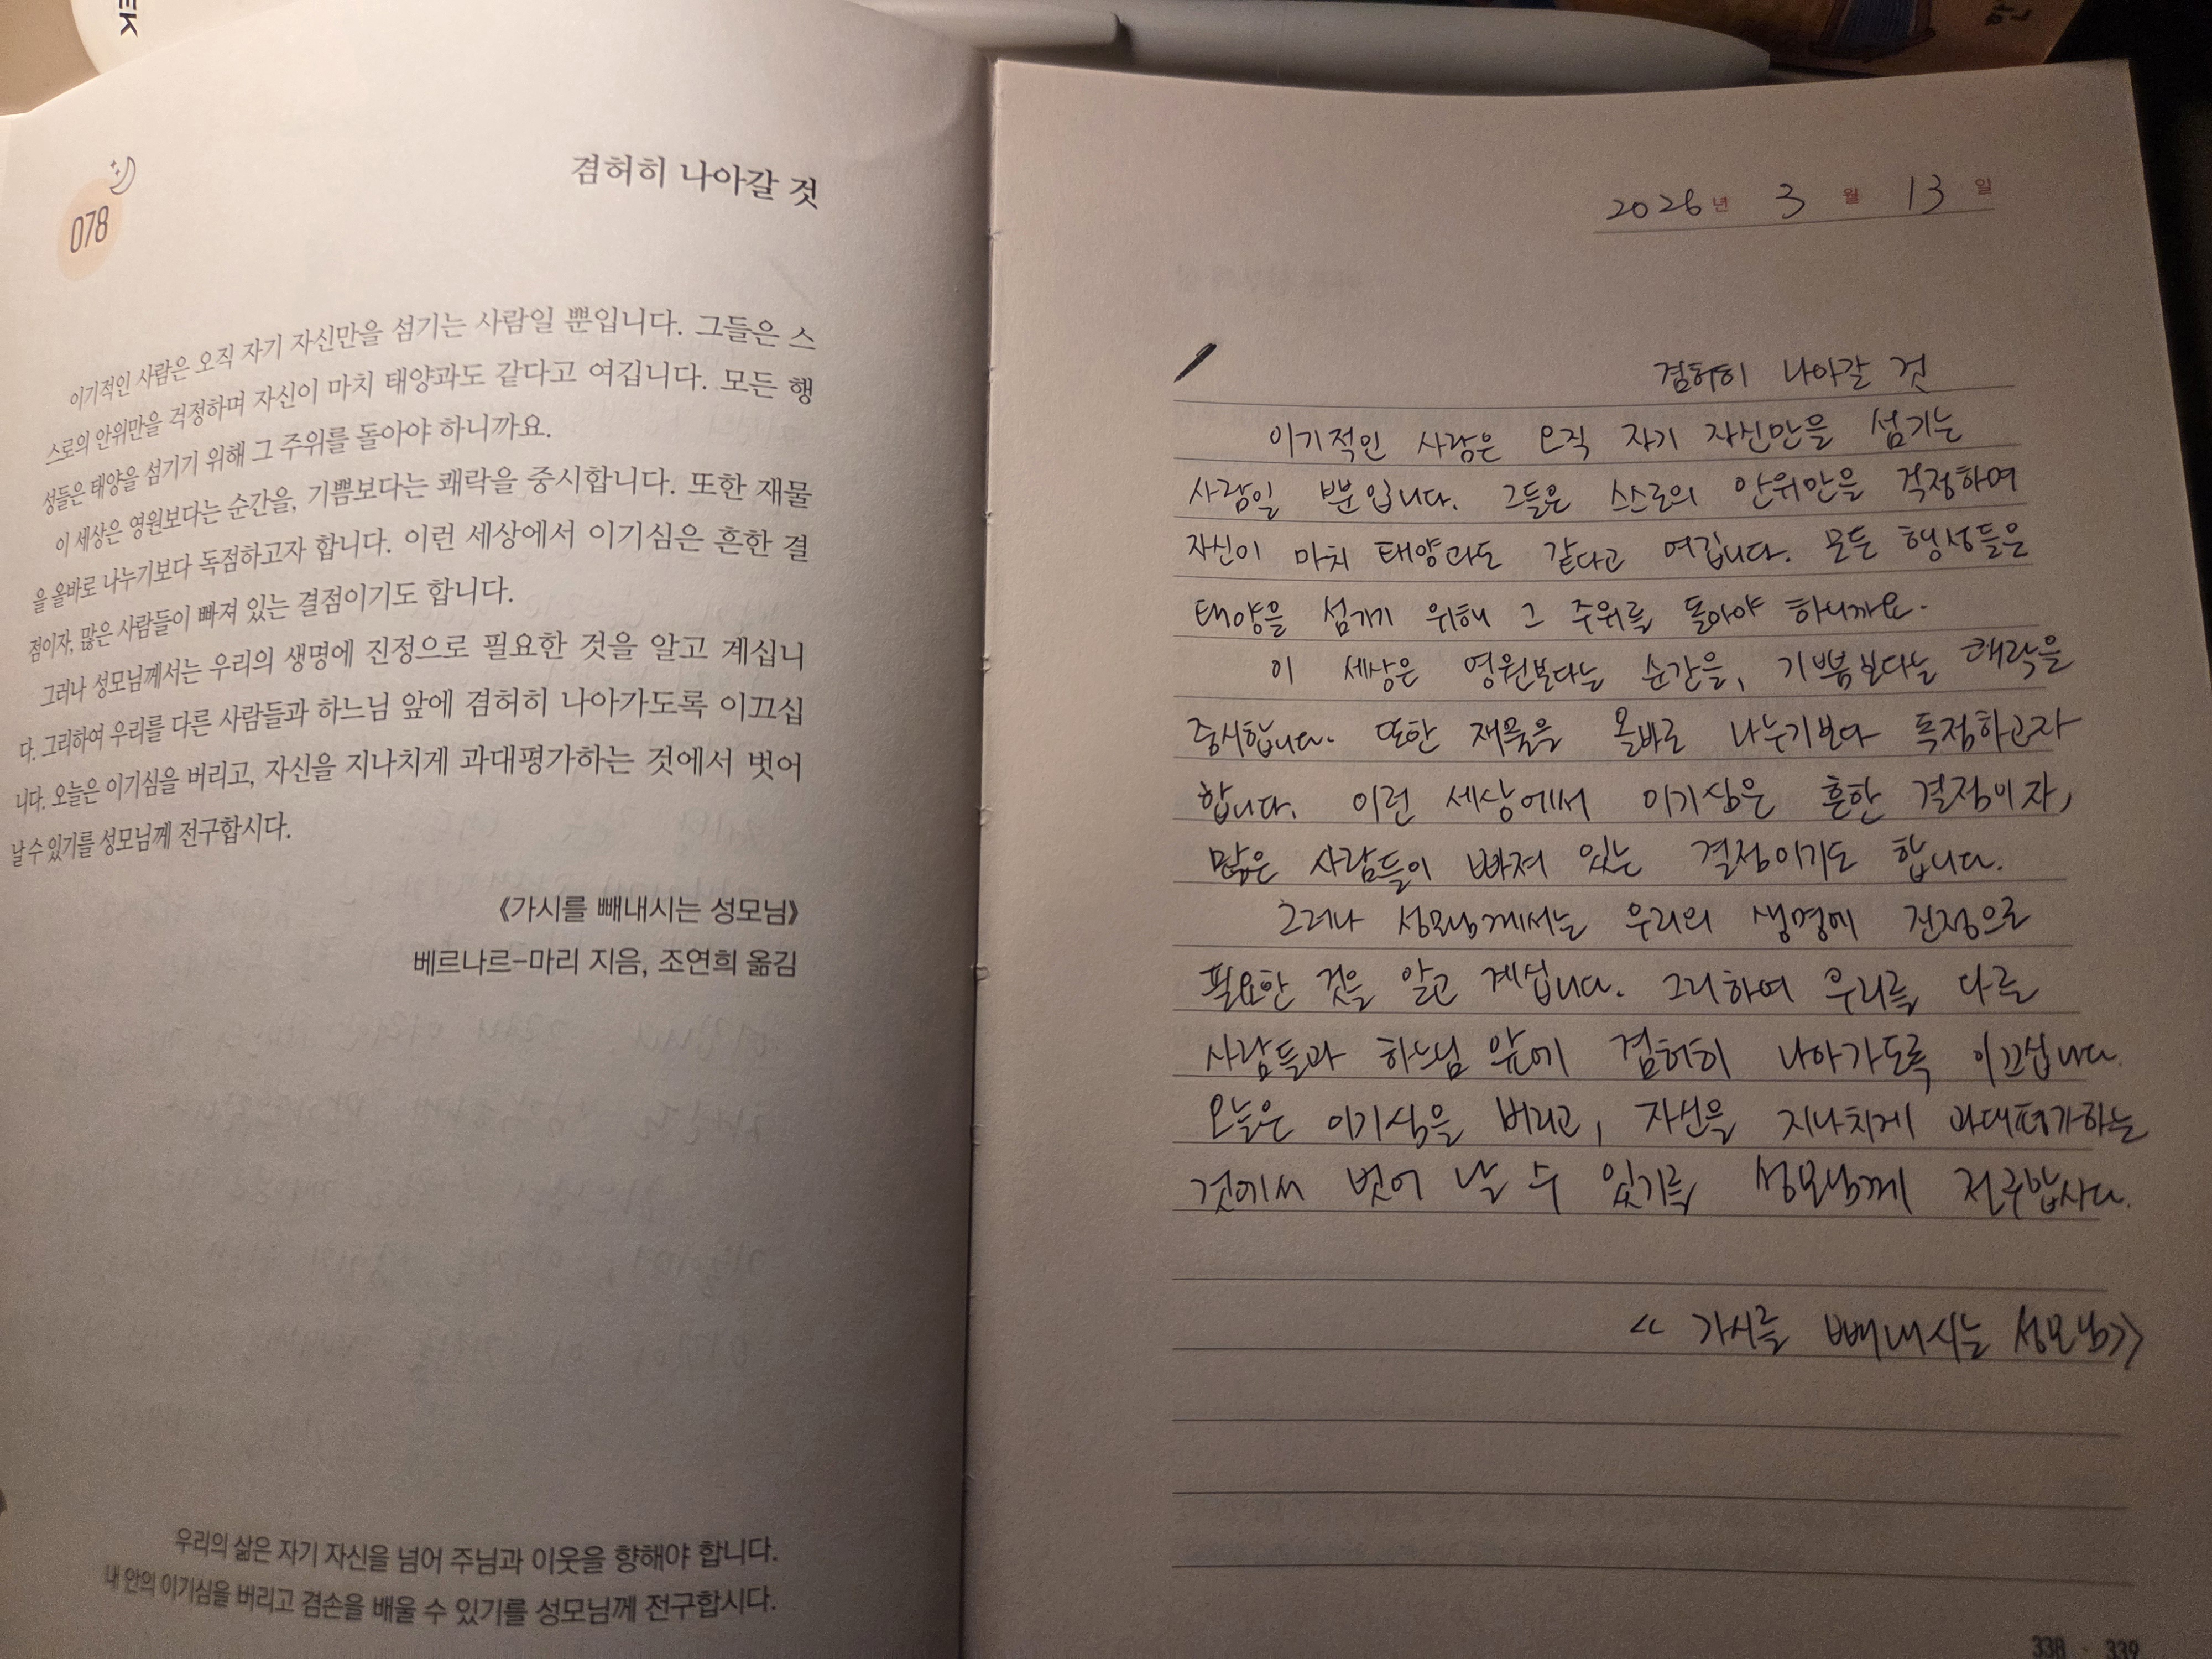 078
겸허히 나아갈 것
이기적인 사람은 오직 자기 자신만을 섬기는 사람일 뿐입니다. 그들은 스
스로의 안위만을 걱정하며 자신이 마치 태양과도 같다고 여깁니다. 모든 행
성들은 태양을 섬기기 위해 그 주위를 돌아야 하니까요.
이 세상은 영원보다는 순간을, 기쁨보다는 쾌락을 중시합니다. 또한 재물
을 올바로 나누기보다 독점하고자 합니다. 이런 세상에서 이기심은 흔한 결
점이자, 많은 사람들이 빠져 있는 결점이기도 합니다.
그러나 성모님께서는 우리의 생명에 진정으로 필요한 것을 알고 계십니
다. 그리하여 우리를 다른 사람들과 하느님 앞에 겸허히 나아가도록 이끄십
니다. 오늘은 이기심을 버리고, 자신을 지나치게 과대평가하는 것에서 벗어
날 수 있기를 성모님께 전구합시다.
《가시를 빼내시는 성모님》
베르나르-마리 지음, 조연희 옮김
우리의 삶은 자기 자신을 넘어 주님과 이웃을 향해야 합니다.
내 안의 이기심을 버리고 겸손을 배울 수 있기를 성모님께 전구합시다.
2026년 3월 13일
겸허히 나아갈 것
이기적인 사람은 오직 자기 자신만을 섬기는
사람일 뿐입니다. 그들은 스스로의 안위만을 걱정하며
자신이 마치 태양과도 같다고 여깁니다. 모든 행성들은
태양을 섬기기 위해 그 주위를 돌아야 하니까요.
이 세상은 영원보다는 순간을, 기쁨보다는 쾌락을
중시합니다. 또한 재물을 올바로 나누기보다 독점하고자
합니다. 이런 세상에서 이기심은 흔한 결점이자,
많은 사람들이 빠져 있는 결점이기도 합니다.
그러나 성모님께서는 우리의 생명에 진정으로
필요한 것을 알고 계십니다. 그리하여 우리를 다른
사람들과 하느님 앞에 겸허히 나아가도록 이끄십니다.
오늘은 이기심을 버리고, 자신을 지나치게 과대평가하는
것에서 벗어 날 수 있기를 성모님께 전구합시다.
<< 가시를 빼내시는 성모님>>
338 · 339